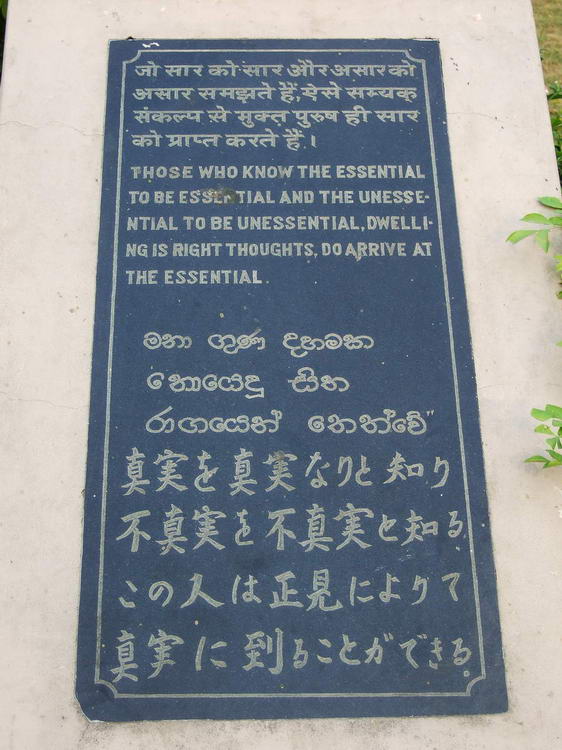 जो सार को सार और असार को
असार समझते हैं, ऐसे सम्यक्
संकल्प से मुक्त पुरुष ही सार
को प्राप्त करते हैं।
THOSE WHO KNOW THE ESSENTIAL
TO BE ESSENTIAL AND THE UNESSE-
NTIAL TO BE UNESSENTIAL, DWELLI-
NG IS RIGHT THOUGHTS, DO ARRIVE AT
THE ESSENTIAL.
මනා ගුණ දහමක
නොයෙදු සිත
රාගයෙන් තෙත්වේ"
真実を真実なりと知り
不真実を不真実と知る
この人は正見によりて
真実に到ることができる。